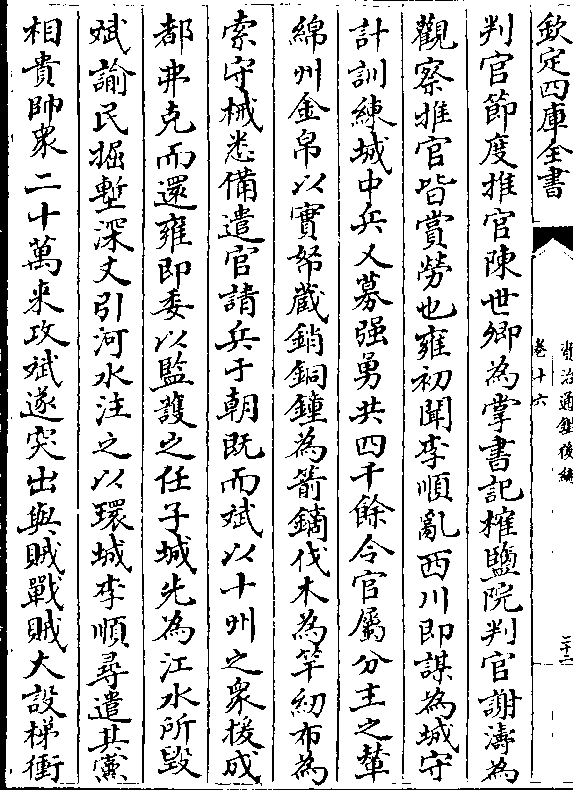 欽定四庫全書
資治通鑑後編
卷十六
二十二
判官節度推官陳世卿為掌書記𣙜鹽院判官謝濤為
觀察推官皆賞勞也雍初聞李順亂西川即謀為城守
計訓練城中兵又募强勇共四千餘令官屬分主之輦
綿州金帛以實帑藏銷銅鐘為箭鏑伐木為竿紉布為
索守械悉備遣官請兵于朝既而斌以十州之衆援成
都弗克而還雍即委以監護之任子城先為江水所毀
斌諭民掘塹深丈引河水注之以環城李順尋遣其黨
相貴帥衆二十萬來攻斌遂突出與賊戰賊大設梯衝